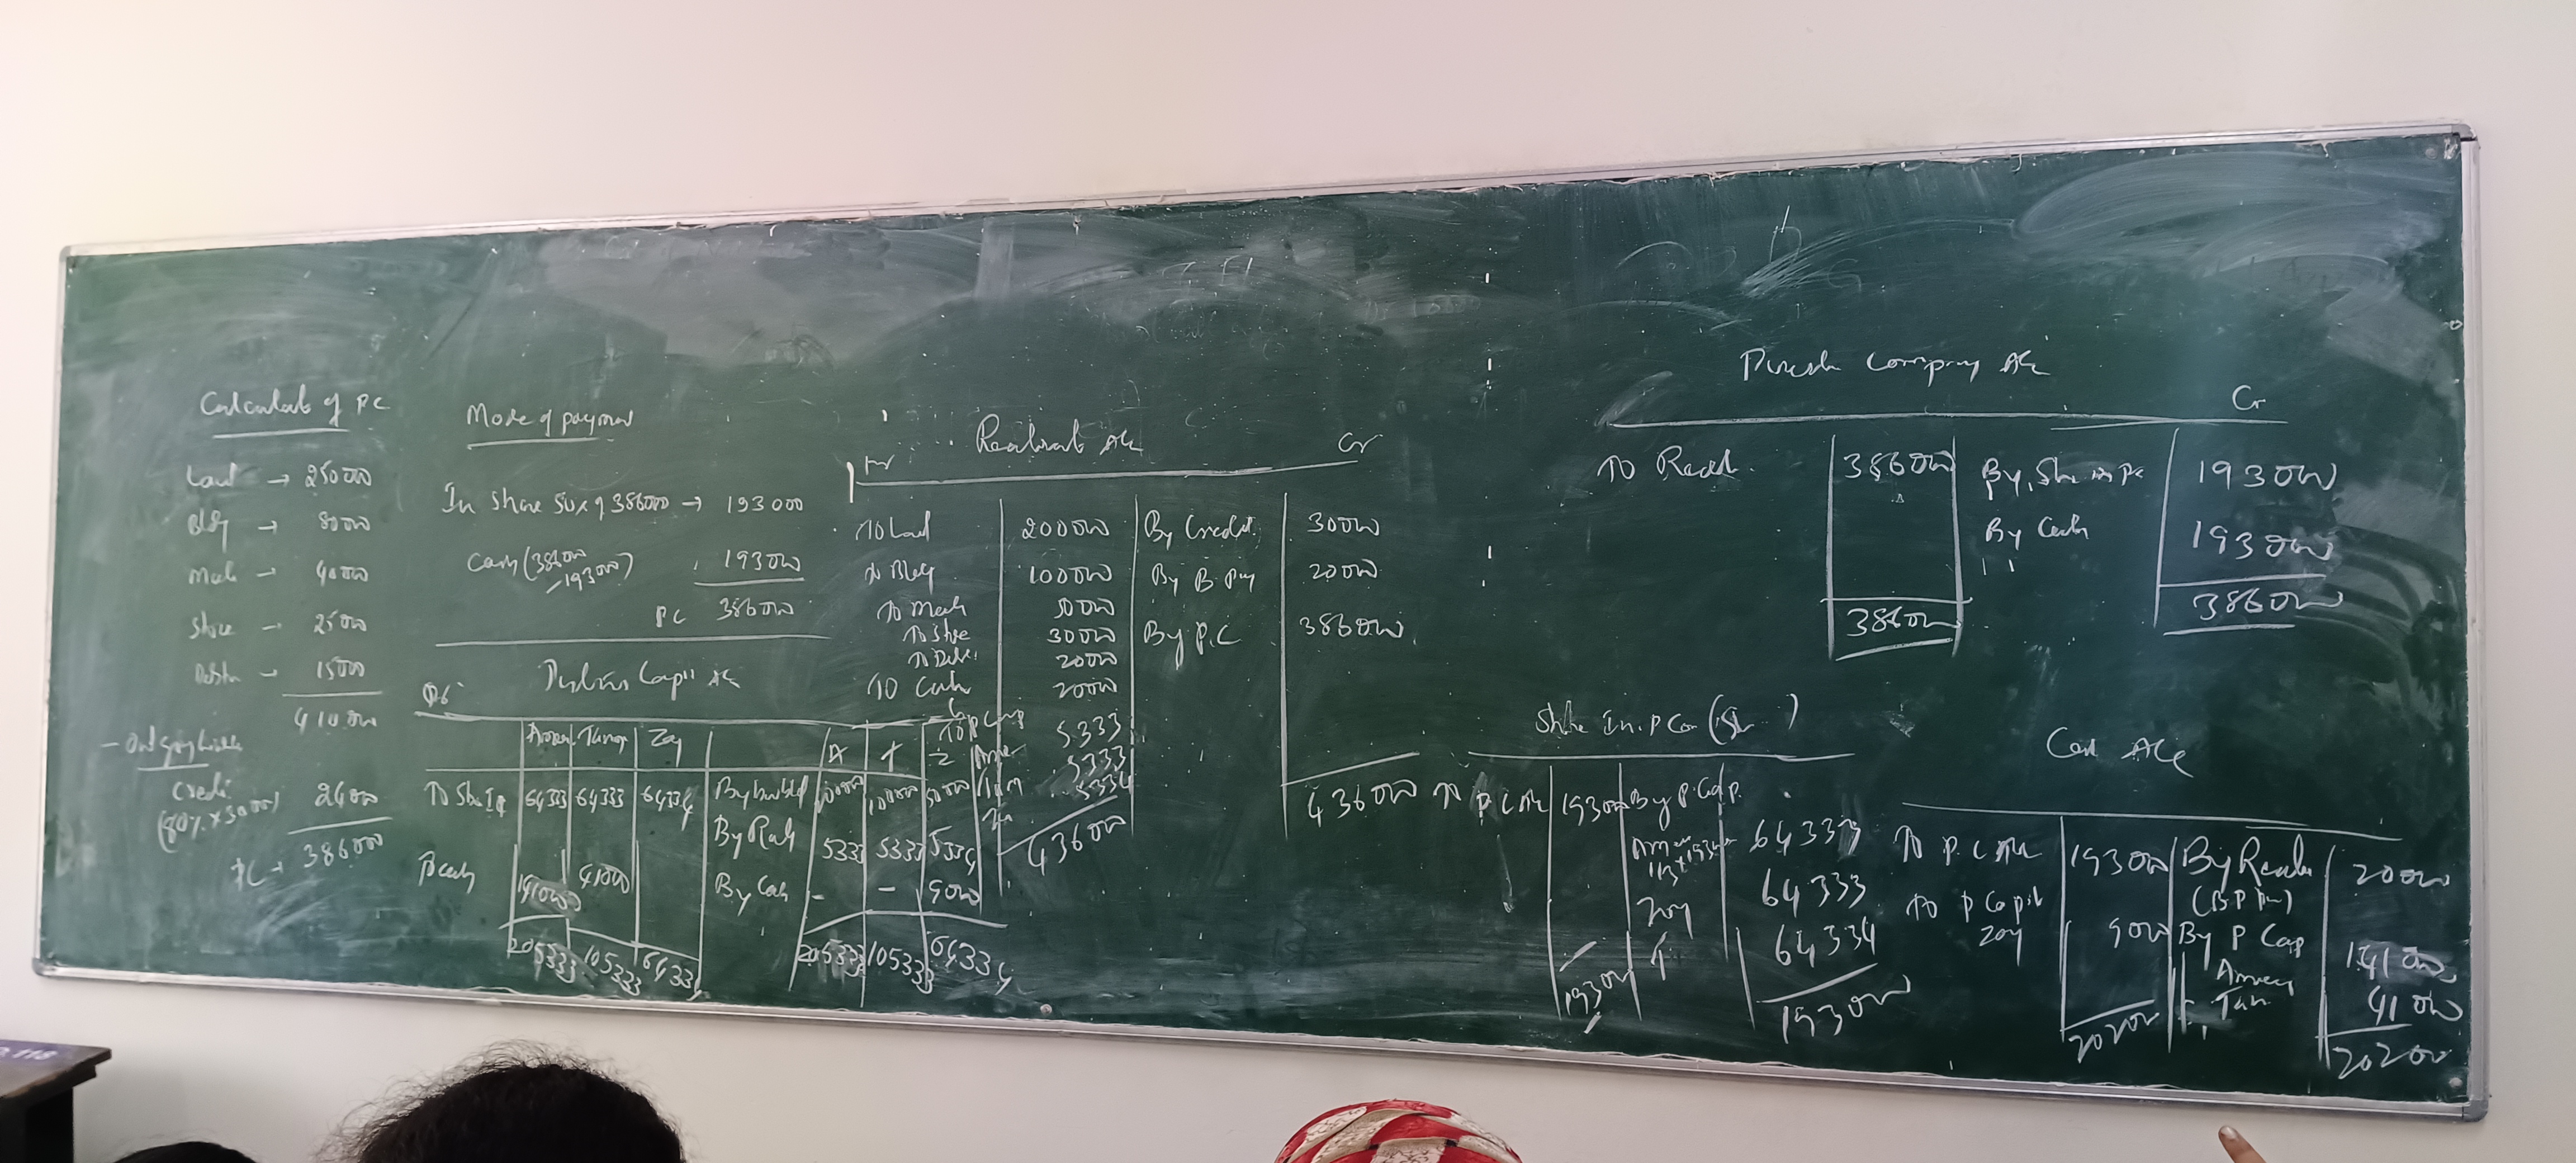 Calculat of PC
Land → 250000
Bldg → 80000
Mach → 40000
Store → 25000
Debtr → 15000
410000
Credi
(80% x 30000) 24000
PC → 386000
Mode of payment
In Share 50% of 386000 → 193000
Cash (386000
- 193000) 193000
PC 386000
Capit Ac
Amer Tanay Zoy A T Z
To Sha Iq 64333 64333 64334
By Real 5333 5333 5334
To cash 141000 41000
By Cash - - 9000
205333 105333 64334 205333 105333 64334
Realisat Ac
Dr Cr
To Land 200000 By Credit 30000
To Bldg 100000 By B. Pay 20000
To Mach 50000
To Store 30000 By P.C 386000
To Debt. 20000
To Cash 20000
To P Cap
Amer 5333
Tan 5333
Zo 5334
436000 436000
Company Ac
Cr
To Real. 386000 By, Sha in Pc 193000
By Cash 193000
386000 386000
Share In. P Com (Sh )
To P. C Ac 193000 By P. Cap.
Amer
1/3 x 193000 64333
Zoy 64333
T 64334
193000 193000
Cash A/c
To P. C Ac 193000 By Realn 20000
(B P Pay)
To P Capit
Zoy 9000 By P Cap
Ameer 141000
Tan 41000
202000 202000